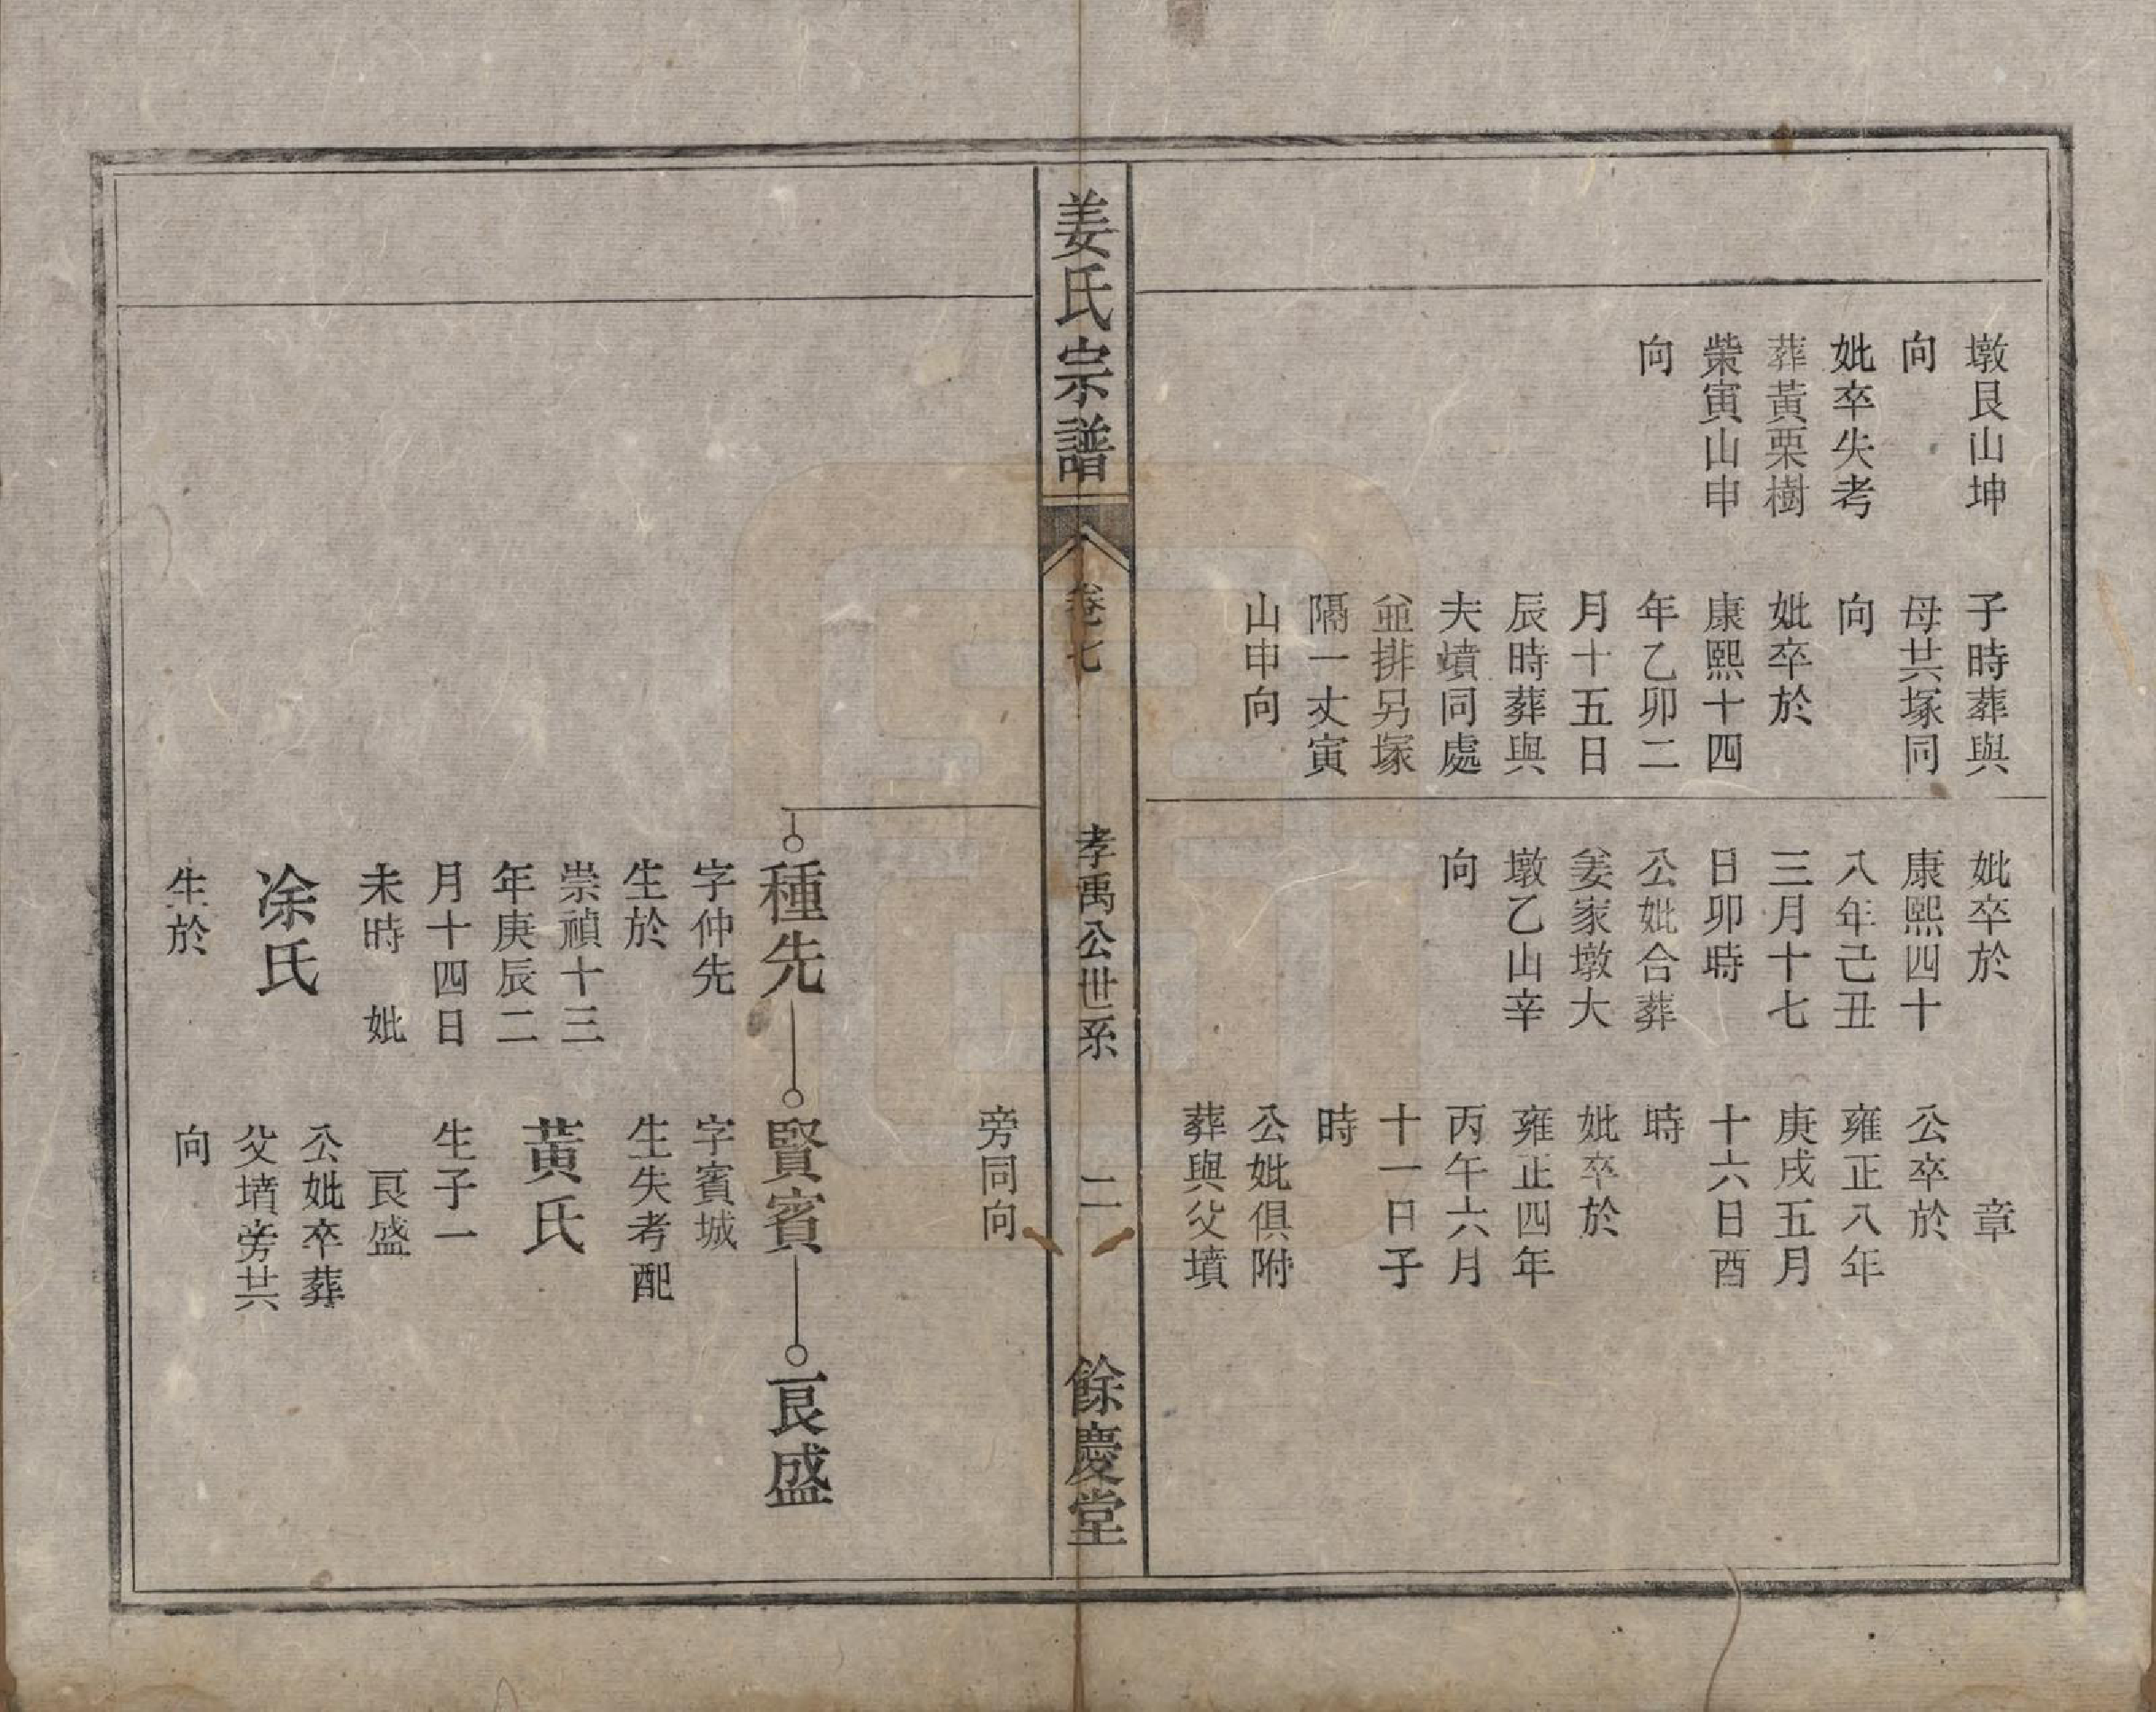 墩艮山坤
向
妣卒失考
葬黃栗樹
柴寅山申
向
子時葬與
母共塚同
向
妣卒於
康熙十四
年乙卯二
月十五日
辰時葬與
夫墳同處
並排另塚
隔一丈寅
山申向
妣卒於
康熙四十
八年己丑
三月十七
日卯時
公妣合葬
姜家墩大
墩乙山辛
向
章
公卒於
雍正八年
庚戌五月
十六日酉
時
妣卒於
雍正四年
丙午六月
十一日子
時
公妣俱附
葬與父墳
姜氏宗譜
卷七
孝禹公世系
二
餘慶堂
旁同向
種先
字仲先
生於
崇禎十三
年庚辰二
月十四日
未時 妣
凃氏
生於
賢賓
字賓城
生失考配
黃氏
生子一
良盛
公妣卒葬
父墳旁共
向
良盛